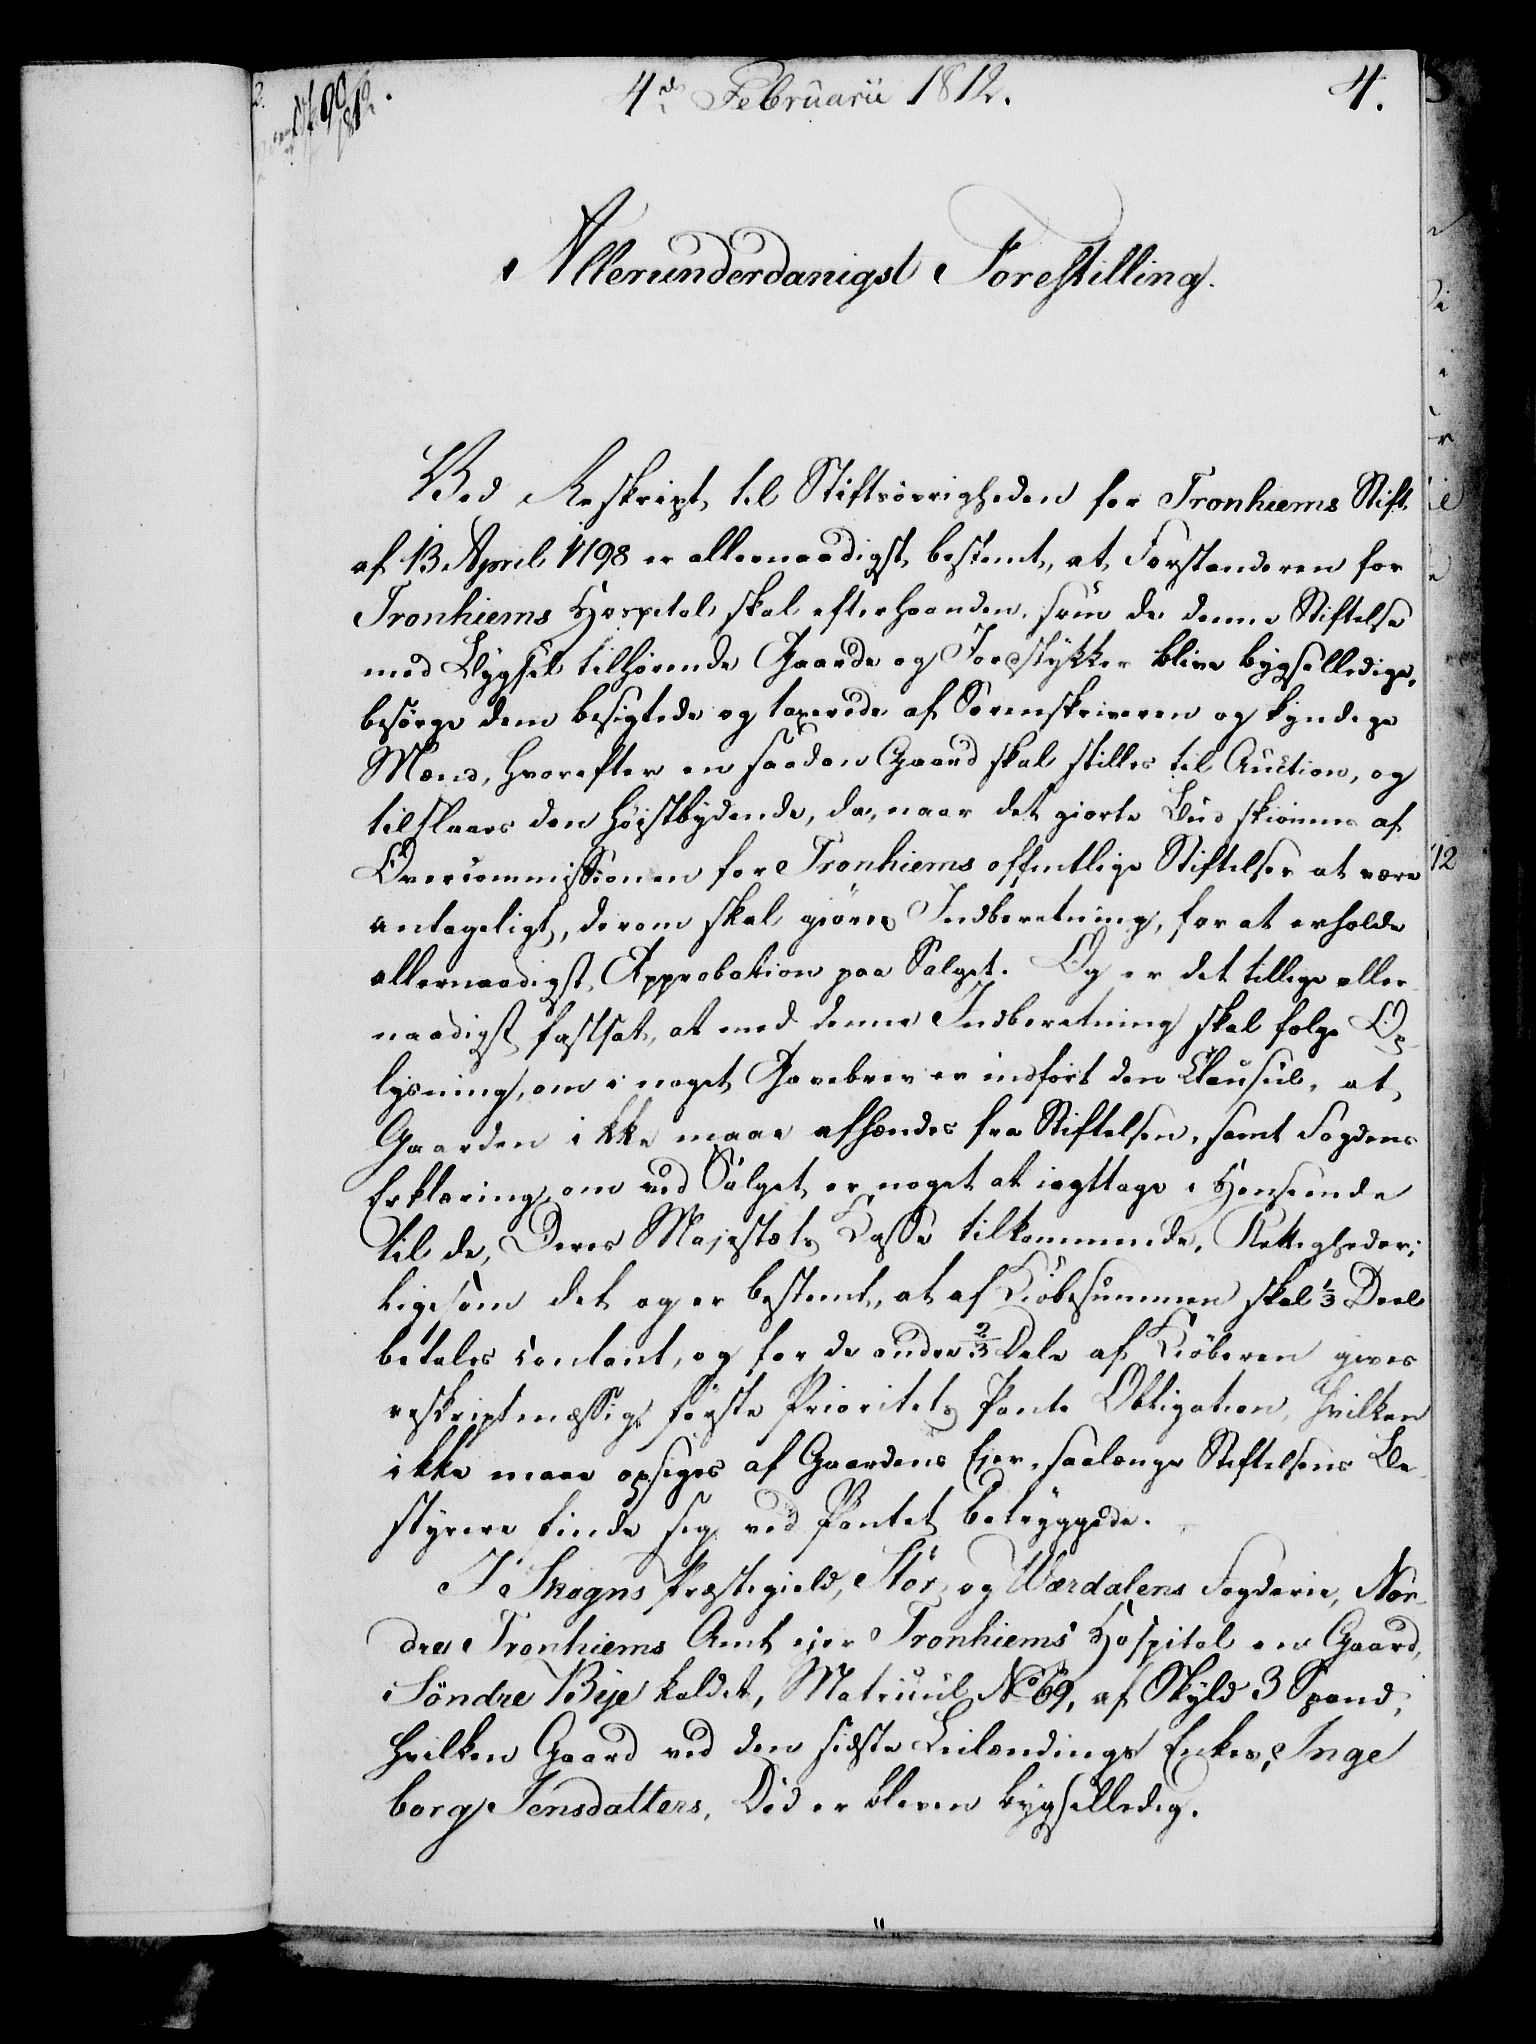 4de Februarii 1812.
4.
Allerunderdanigst Forestilling.
Ved Reskript til Stiftsøvrigheden for Tronhiems Stift
af 13 April 1798 er allernaadigst bestemt, at Forstanderen for
Tronhiems Hospital skal efterhaanden, som de denne Stiftelse
med Bygsel tilhørende Gaarde og Jordstykker blive bygselledige,
besørge dem besigtede og taxerede af Sorenskriveren og kyndige
Mænd, hvorefter en saadan Gaard skal stilles til Auction, og
tilslaaes den høistbydende, da, naar det giorte Bud skiønnes af
Overcommissionen for Tronhiems offentlige Stiftelser at være
antageligt, derom skal giøres Indberetning, for at erholde
allernaadigst Approbation paa Salget. Og er det tillige aller-
naadigst fastsat, at med denne Indberetning skal følge Op-
lysning, om i noget Gavebrev er indført den Clausul, at
Gaarden ikke maae afhændes fra Stiftelsen, samt Fogdens
Erklæring, om ved Salget er noget at iagttage i Henseende
til de, Deres Majestæts Casse tilkommende, Rettigheder;
ligesom det og er bestemt, at af Kiøbesummen skal 1/3 Deel
betales contant, og for de andre 2/3 Dele af Kiøberen gives
reskriptmæssig første Prioritets Pante Obligation, hvilken
ikke maae opsiges af Gaardens Ejer, saalænge Stiftelsens Be-
styrere finde sig ved Pantet betryggede.
I Skogns Præstegield, Stør- og Værdalens Fogderie, Nor-
dre Tronhiems Amt ejer Tronhiems Hospital en Gaard,
Søndre Bye kaldet, Matricul No 69, af Skyld 3 Spand,
hvilken Gaard ved den sidste Leilændings Enkes, Inge
borg Jensdatters, Død er bleven bygselledig.